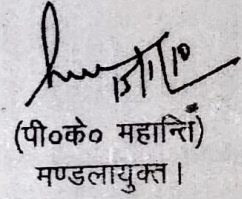 15/1/10
(पी०के० महान्ति)
मण्डलायुक्त।